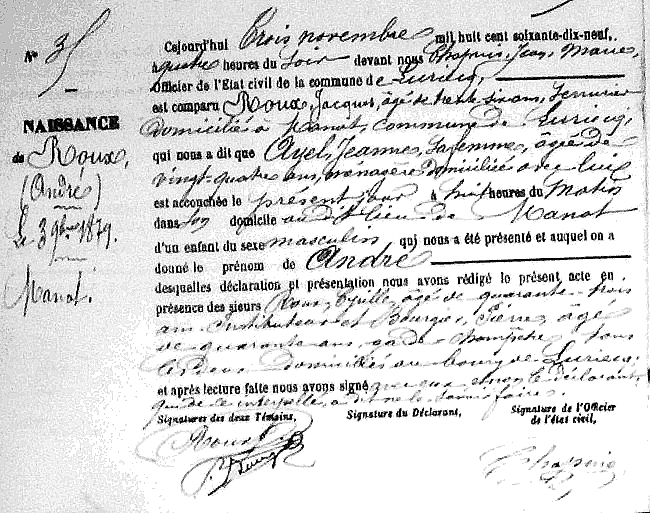 N° 35
NAISSANCE
de Roux,
(André)
Le 3 9bre 1879.
Manot.
Cejourd'hui Trois novembre mil huit cent soixante-dix-neuf,
à quatre heures du Soir devant nous Chapuis, Jean, Marie,
Officier de l'État civil de la commune de Luriecq,
est comparu Roux, Jacques, âgé de trente six ans,
domicilié à Manot, commune de Luriecq,
qui nous a dit que Ayel, Jeanne, sa femme, âgée de
vingt-quatre ans, ménagère domiciliée avec lui
est accouchée le présent jour à huit heures du Matin
dans son domicile au dit lieu de Manot
d'un enfant du sexe masculin qui nous a été présenté et auquel on a
donné le prénom de André
desquelles déclaration et présentation nous avons rédigé le présent acte en
présence des sieurs Roux, âgé de quarante trois
ans Instituteur et Bourge, Pierre, âgé
de quarante ans, garde champêtre, tous
les deux domiciliés au bourg de Luriecq.
et après lecture faite nous avons signé avec eux et non le déclarant,
qui de ce interpellé, a dit ne le savoir faire.
Signatures des deux Témoins, Signature du Déclarant, Signature de l'Officier
de l'état civil,
Roux
Chapuis